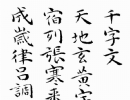 千字文
天地玄黃宇
宿列張寒來
成歲律呂調